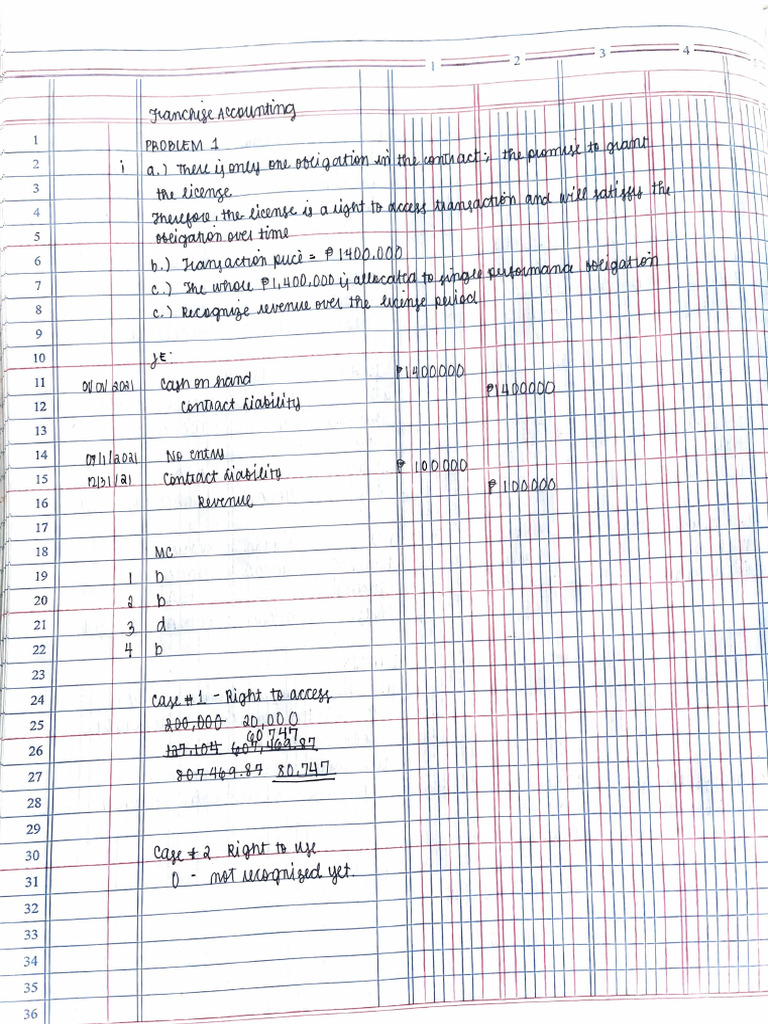 1 2 3 4
Franchise Accounting
1 PROBLEM 1
2 i a.) There is only one obligation in the contract; the promise to grant
3 the license
4 Therefore, the license is a right to access transaction and will satisfy the
5 obligation over time
6 b.) Transaction price = ₱1400.000
7 c.) The whole ₱1,400,000 is allocated to single performance obligation
8 c.) Recognize revenue over the license period
9
10 JE:
11 01/01/2021 Cash on hand ₱1400000
12 Contract Liability ₱1400000
13
14 09/1/2021 No entry
15 12/31/21 Contract Liability ₱ 100000
16 Revenue ₱100000
17
18 MC
19 1 b
20 2 b
21 3 d
22 4 b
23
24 Case #1 - Right to access
25 200,000 20,000
60747
26 127,104 607,469.87
27 807469.87 80,747
28
29
30 Case # 2 Right to use
31 0 - not recognized yet.
32
33
34
35
36